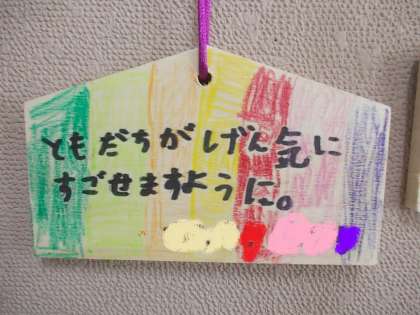 ともだちがげん気に
すごせますように。